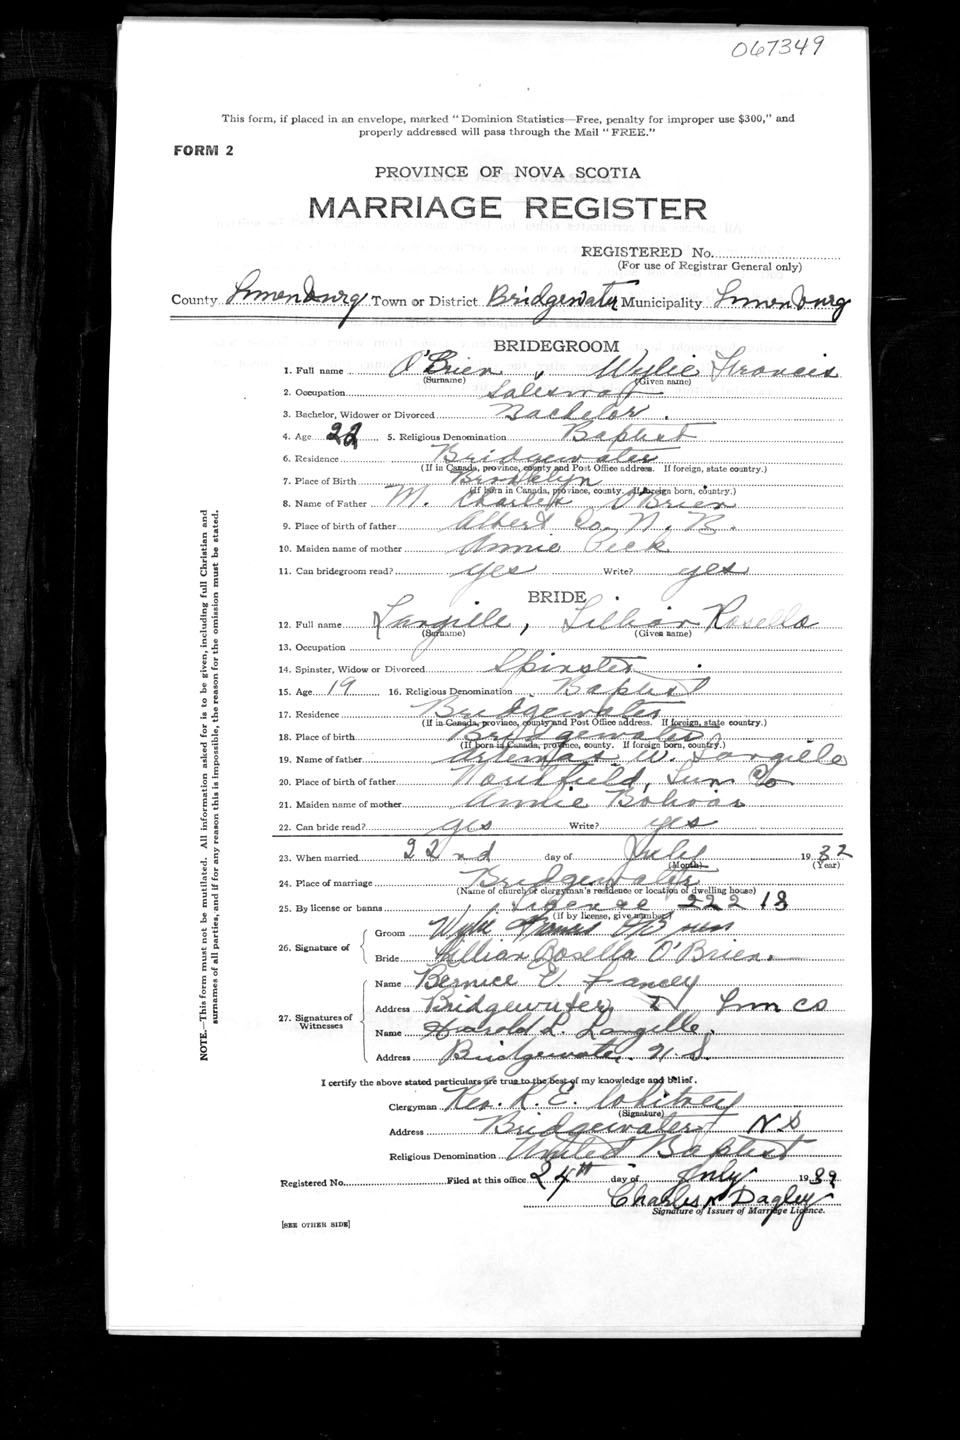 067349
This form, if placed in an envelope, marked "Dominion Statistics—Free, penalty for improper use $300," and
properly addressed will pass through the Mail "FREE."
FORM 2
PROVINCE OF NOVA SCOTIA
MARRIAGE REGISTER
REGISTERED No.
(For use of Registrar General only)
County Lunenburg Town or District Bridgewater Municipality Lunenburg
BRIDEGROOM
1. Full name O'Brien, Wylie Francis
(Surname) (Given name)
2. Occupation Salesman
3. Bachelor, Widower or Divorced Bachelor.
4. Age 22 5. Religious Denomination Baptist
6. Residence Bridgewater
(If in Canada, province, county and Post Office address. If foreign, state country.)
7. Place of Birth Brooklyn
(If born in Canada, province, county. If foreign born, country.)
8. Name of Father M. Charles O'Brien
9. Place of birth of father Albert Co. N. B.
10. Maiden name of mother Annie Peck
11. Can bridegroom read? yes Write? yes
BRIDE
12. Full name Langille, Lillian Rosella
(Surname) (Given name)
13. Occupation
14. Spinster, Widow or Divorced Spinster
15. Age 19 16. Religious Denomination Baptist
17. Residence Bridgewater
(If in Canada, province, county and Post Office address. If foreign, state country.)
18. Place of birth Bridgewater
(If born in Canada, province, county. If foreign born, country.)
19. Name of father Artemas W. Langille
20. Place of birth of father Northfield, Lun Co
21. Maiden name of mother Annie Bolivar
22. Can bride read? yes Write? yes
23. When married 22nd day of July 1932
(Month) (Year)
24. Place of marriage Bridgewater
(Name of church or clergyman's residence or location of dwelling house)
25. By license or banns License 22218
(If by license, give number)
26. Signature of Groom Wylie Francis O'Brien
Bride Lillian Rosella O'Brien.
27. Signatures of Witnesses Name Bernice E. Lancey
Address Bridgewater Lun Co
Name Harold L. Langille.
Address Bridgewater N.S.
I certify the above stated particulars are true to the best of my knowledge and belief.
Clergyman Rev. R. E. Whitney
(Signature)
Address Bridgewater N S
Religious Denomination United Baptist
Registered No. Filed at this office 24th day of July 1932
Charles Dagley
Signature of Issuer of Marriage Licence.
[SEE OTHER SIDE]
NOTE.—This form must not be mutilated. All information asked for is to be given, including full Christian and
surnames of all parties, and if for any reason this is impossible, the reason for the omission must be stated.